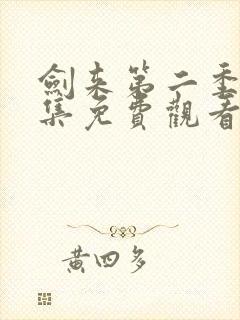 劍来第二季
集免費觀看
黄四多